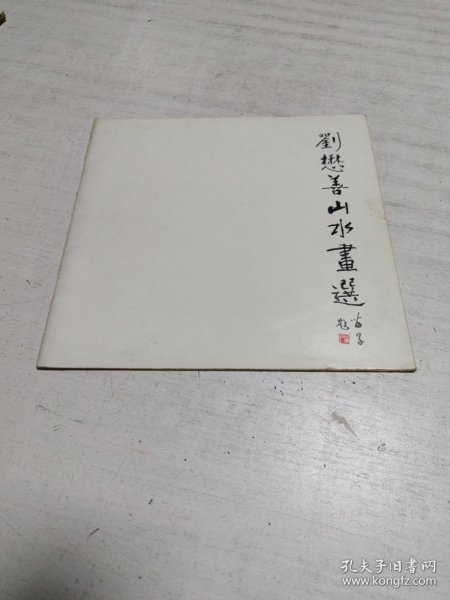 劉懋善山水畫選
孔夫子旧书网
www.kongfz.com